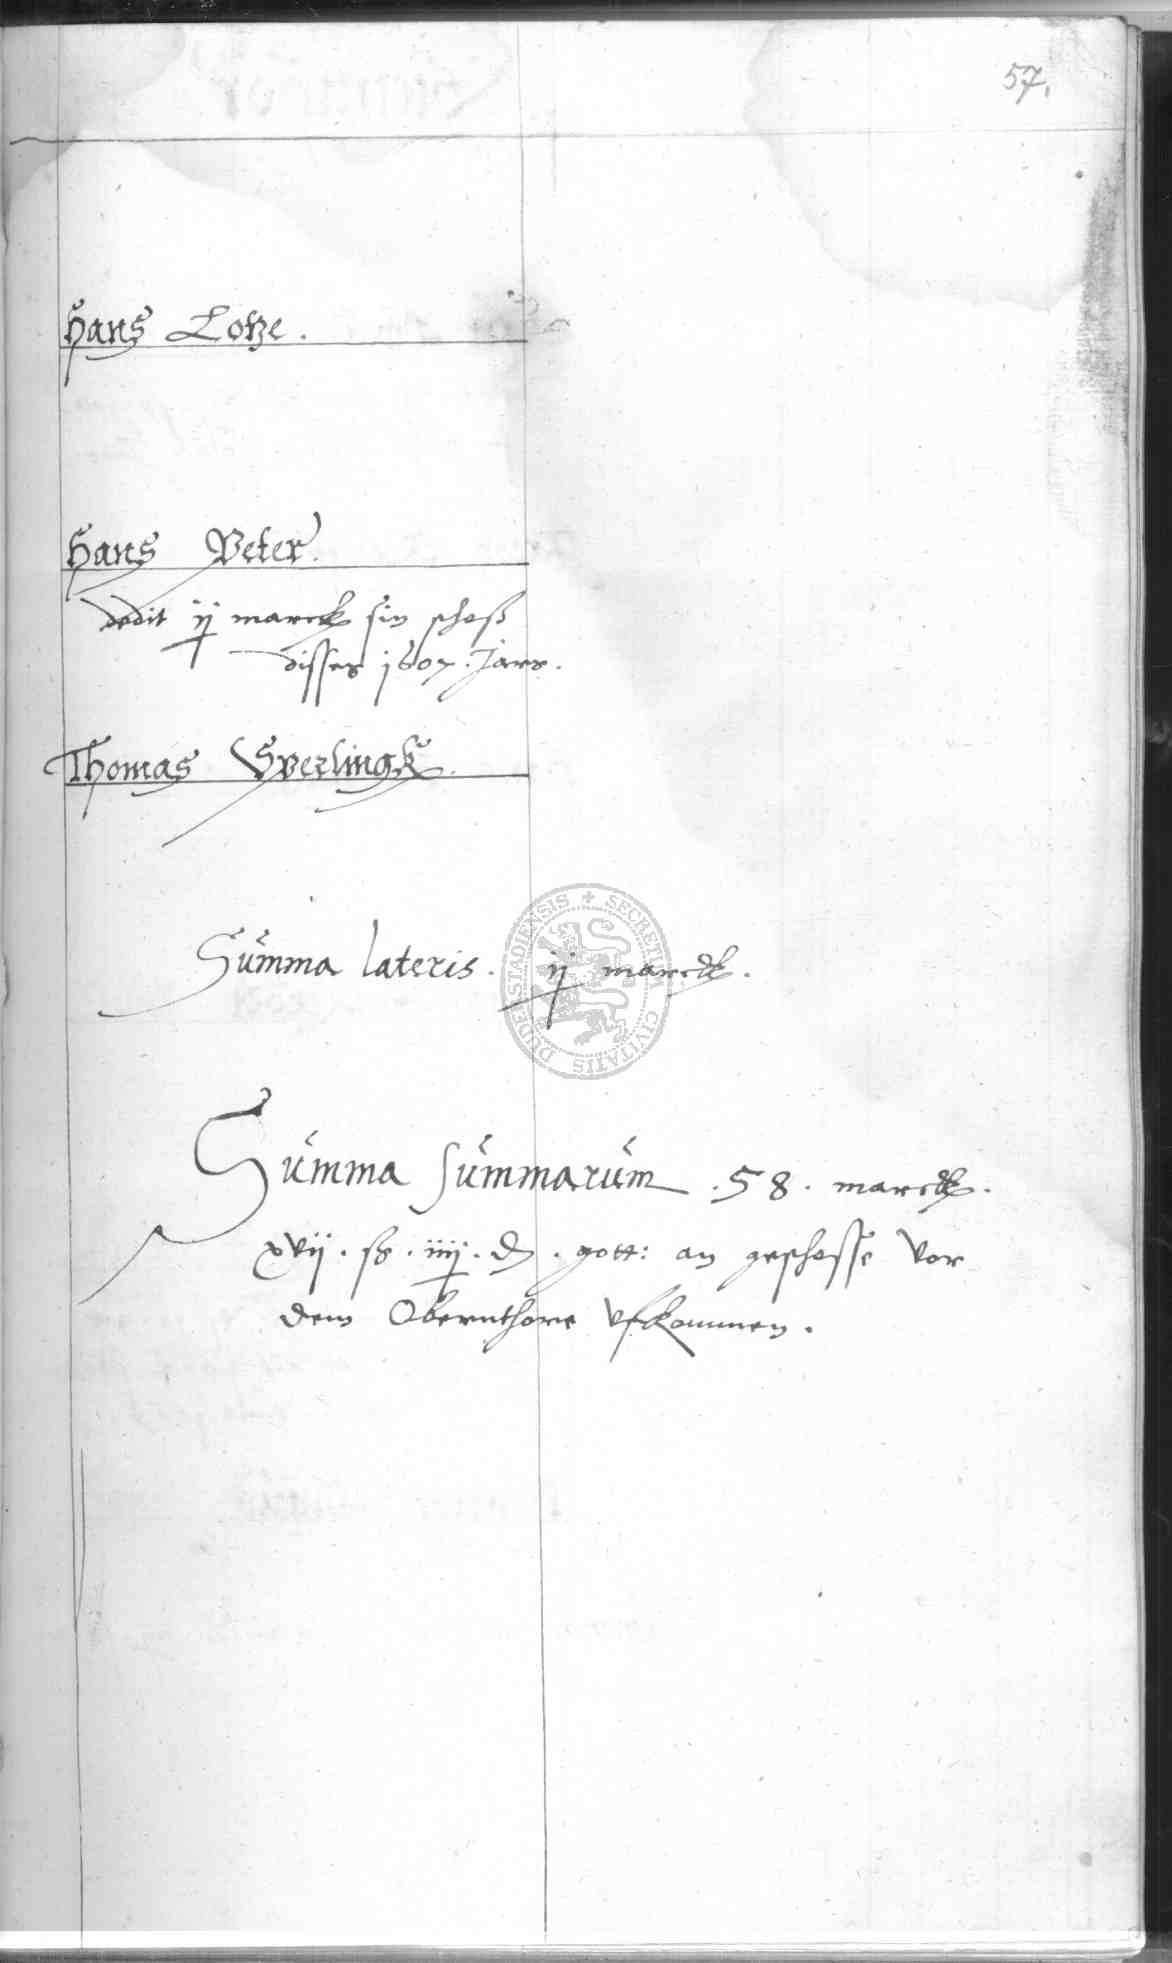 57.
Hans Lotze.
Hans Peter.
dedit ij marck sin schoß
disses 1607. Jars.
Thomas Sperlingk.
Summa lateris. ij marck.
SECRETUM CIVITATIS DUDERSTADIENSIS
Summa summarum .58. marck.
xvij. ß. iiij. d. gott: an geschosse vor
dem Obernthore vfkommen.